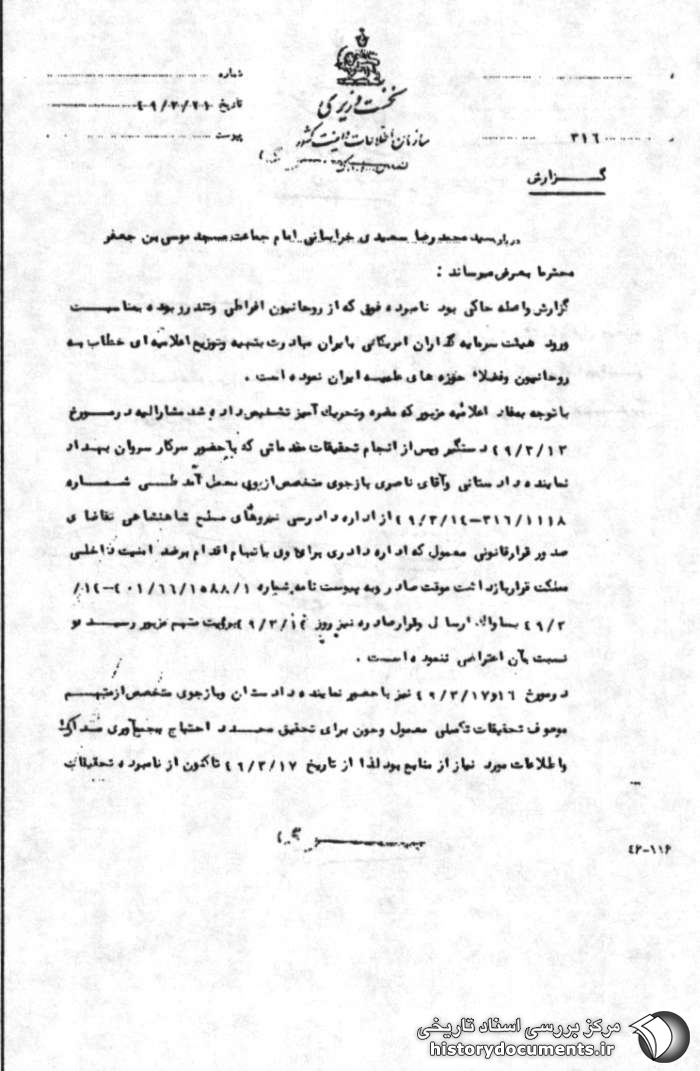 نخست وزیری
سازمان اطلاعات و امنیت کشور
شماره
تاریخ ۴۹/۳/۲۱
پیوست
۳۱۶
گزارش
درباره سید محمد رضا سعیدی خراسانی امام جماعت مسجد موسی بن جعفر
محترما بعرض میرساند :
گزارش واصله حاکی بود نامبرده فوق که از روحانیون افراطی وتندرو بوده بمناسبت
ورود هیئت سرمایه گذاران امریکائی بایران مبادرت بتهیه وتوزیع اعلامیه ای خطاب به
روحانیون وفضلاء حوزه های علمیه ایران نموده است .
با توجه بمفاد اعلامیه مزبور که مضره وتحریک آمیز تشخیص داده شد مشارالیه درمورخ
۴۹/۳/۱۳ دستگیر وپس از انجام تحقیقات مقدماتی که با حضور سرکار سروان بهداد
نماینده دادستانی وآقای ناصری بازجوی متخصص ازوی بعمل آمد طی شماره
۳۱۶/۱۱۱۸-۴۹/۳/۱۴ از اداره دادرسی نیروهای مسلح شاهنشاهی تقاضای
صدور قرارقانونی معمول که اداره دادرسی برای وی با تهام اقدام برضد امنیت داخلی
مملکت قراربازداشت موقت صادر وبه پیوست نامه شماره ۴۰۱/۶۶/۱۵۸۸/۱-۱۴/
۴۹/۳ بساواک ارسال وقرارصادره نیز روز ۴۹/۳/۱۴ برویت متهم مزبور رسیده و
نسبت بآن اعتراضی ننموده است .
درمورخ ۱۶و۴۹/۳/۱۷ نیز با حضور نماینده دادستان وبازجوی متخصص ازمتهم
موصوف تحقیقات تکمیلی معمول وچون برای تحقیق مجدد احتیاج بجمع آوری مدارک
واطلاعات مورد نیاز از منابع بود لذا از تاریخ ۴۹/۳/۱۷ تاکنون از نامبرده تحقیقات
۴۶-۱۱۶
مرکز بررسی اسناد تاریخی
historydocuments.ir